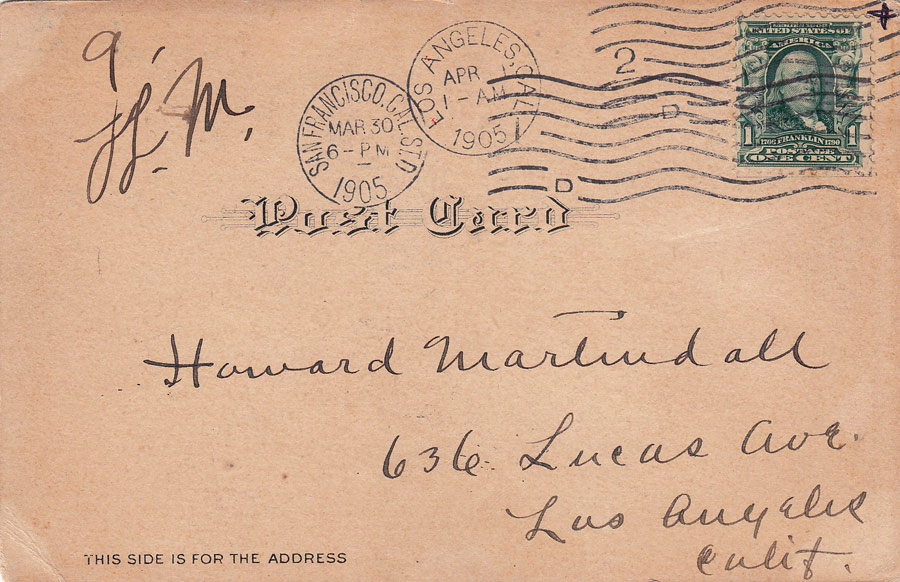 9
H. M.
SAN FRANCISCO, CAL. STA D
MAR 30
6 - PM
1905
LOS ANGELES, CAL
APR
1 - AM
1905
2
D
D
UNITED STATES OF
AMERICA
1 1702 FRANKLIN 1790 1
POSTAGE
ONE CENT
Post Card
Howard Martindall
636 Lucas Ave.
Los Angeles
Calif.
THIS SIDE IS FOR THE ADDRESS